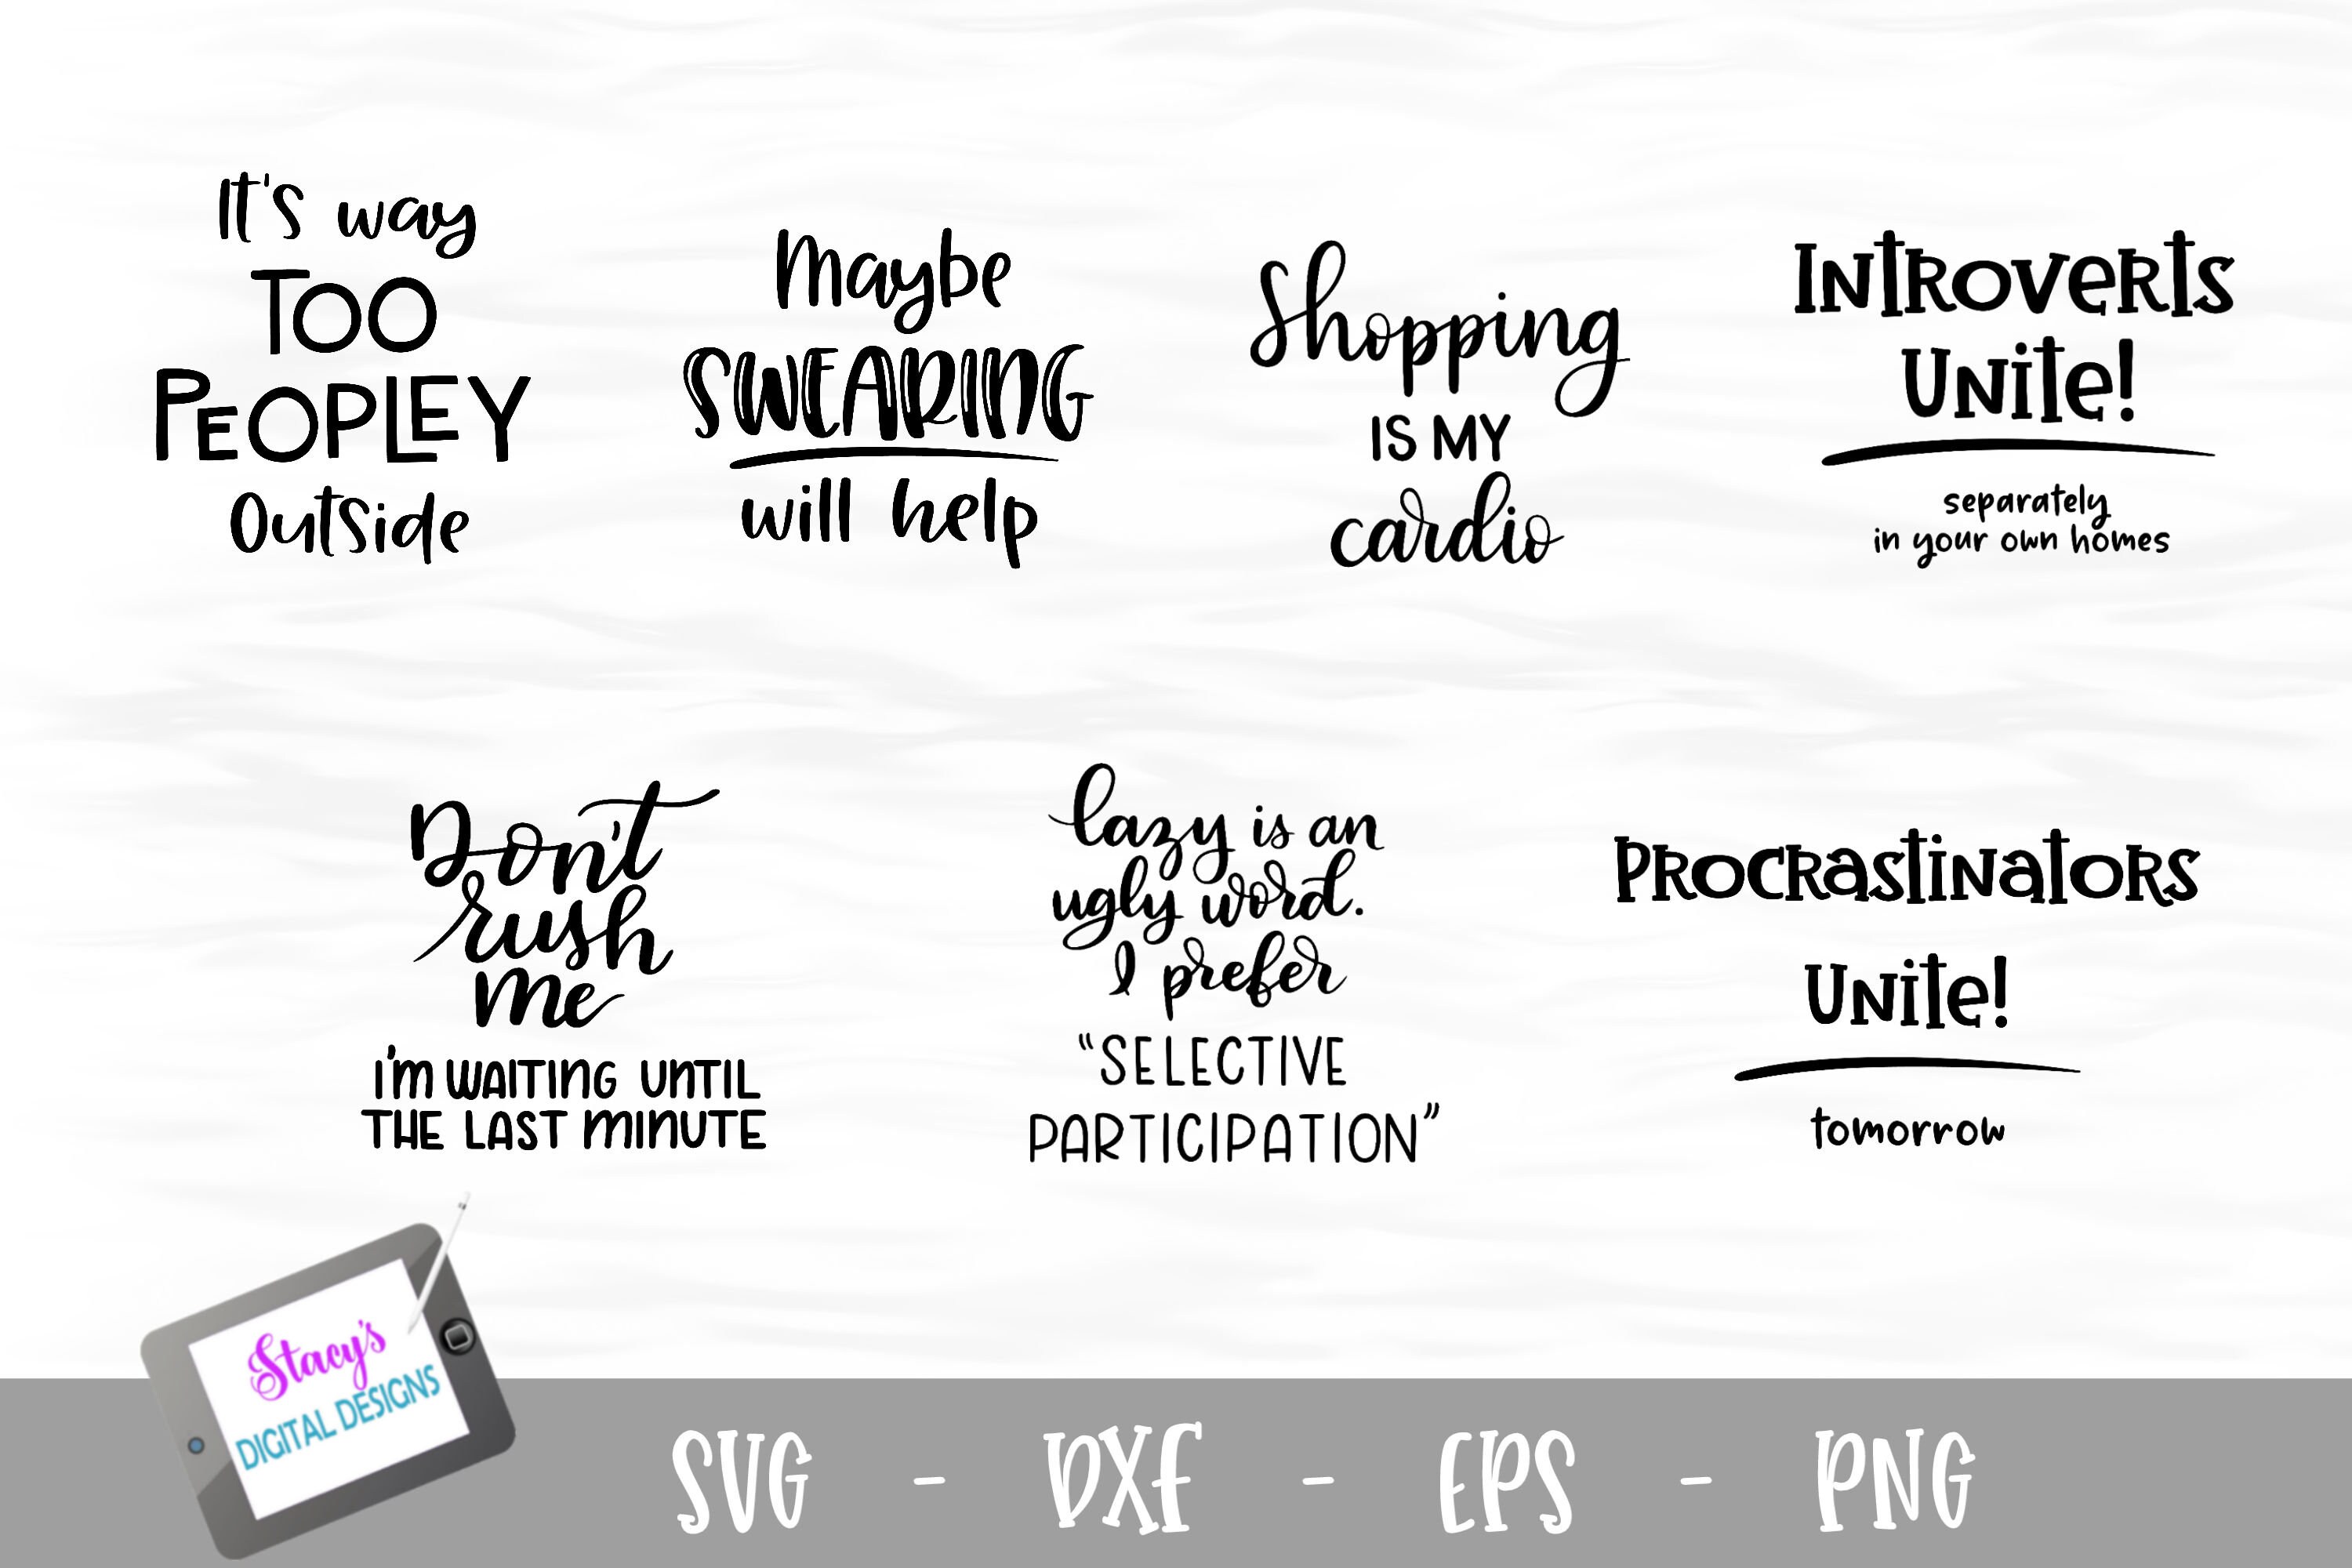 It's way
TOO
PEOPLEY
Outside
Maybe
SWEARING
will help
Shopping
IS MY
cardio
Introverts
Unite!
separately
in your own homes
Don't
rush
me
I'm WAITING UNTIL
THE LAST MINUTE
lazy is an
ugly word.
I prefer
“SELECTIVE
PARTICIPATION”
Procrastinators
Unite!
tomorrow
Stacy's
DIGITAL DESIGNS
SVG - DXF - EPS - PNG